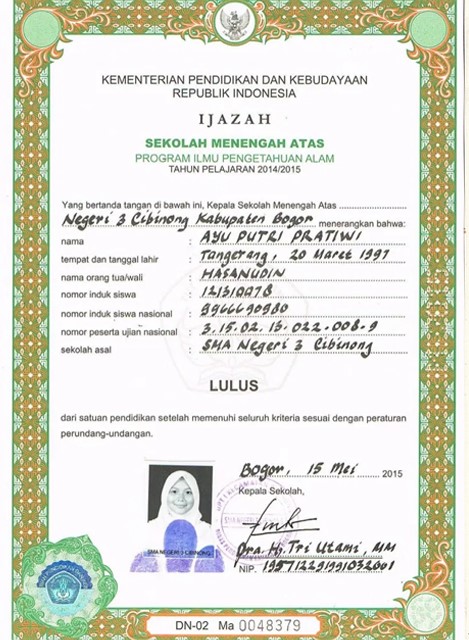 KEMENTERIAN PENDIDIKAN DAN KEBUDAYAAN
REPUBLIK INDONESIA
IJAZAH
SEKOLAH MENENGAH ATAS
PROGRAM ILMU PENGETAHUAN ALAM
TAHUN PELAJARAN 2014/2015
Yang bertanda tangan di bawah ini, Kepala Sekolah Menengah Atas
Negeri 3 Cibinong Kabupaten Bogor menerangkan bahwa:
nama : AYU PUTRI PRATIWI
tempat dan tanggal lahir : Tangerang, 20 Maret 1997
nama orang tua/wali : HASANUDIN
nomor induk siswa : 121310078
nomor induk siswa nasional : 9966690980
nomor peserta ujian nasional : 3.15.02.15.022.008.9
sekolah asal : SMA Negeri 3 Cibinong
LULUS
dari satuan pendidikan setelah memenuhi seluruh kriteria sesuai dengan peraturan
perundang-undangan.
Bogor, 15 Mei 2015
Kepala Sekolah,
SMA NEGERI 3 CIBINONG
Dra. Hj. Tri Utami, MM
NIP. 195712291991032001
DN-02 Ma 0048379